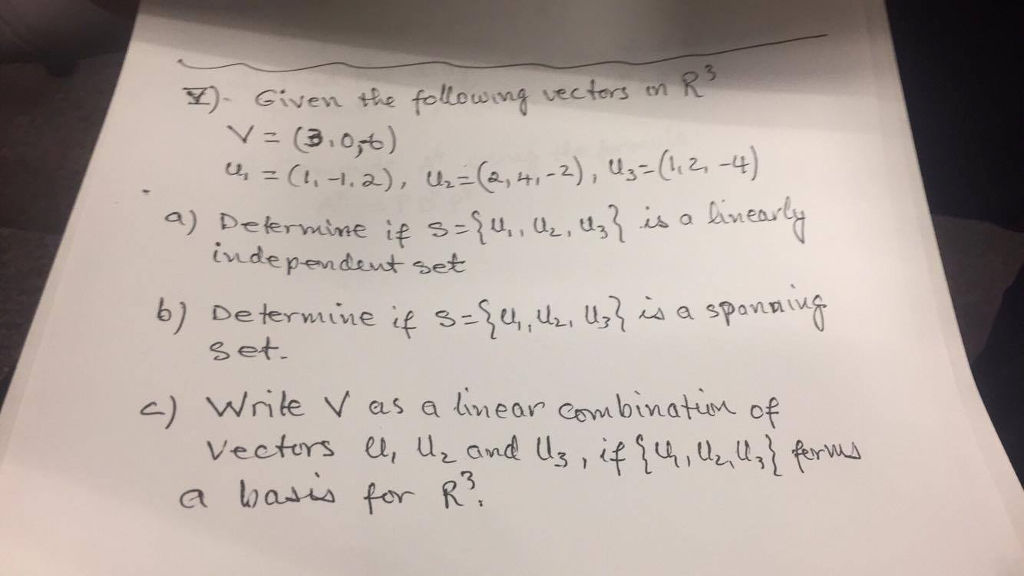 V)- Given the following vectors on R³
V = (3, 0, -6)
u₁ = (1, -1, 2), u₂ = (2, 4, -2), u₃ = (1, 2, -4)
a) Determine if S = {u₁, u₂, u₃} is a linearly
independent set
b) Determine if S = {u₁, u₂, u₃} is a spanning
set.
c) Write V as a linear combination of
Vectors u₁ u₂ and u₃, if {u₁, u₂, u₃} forms
a basis for R³.